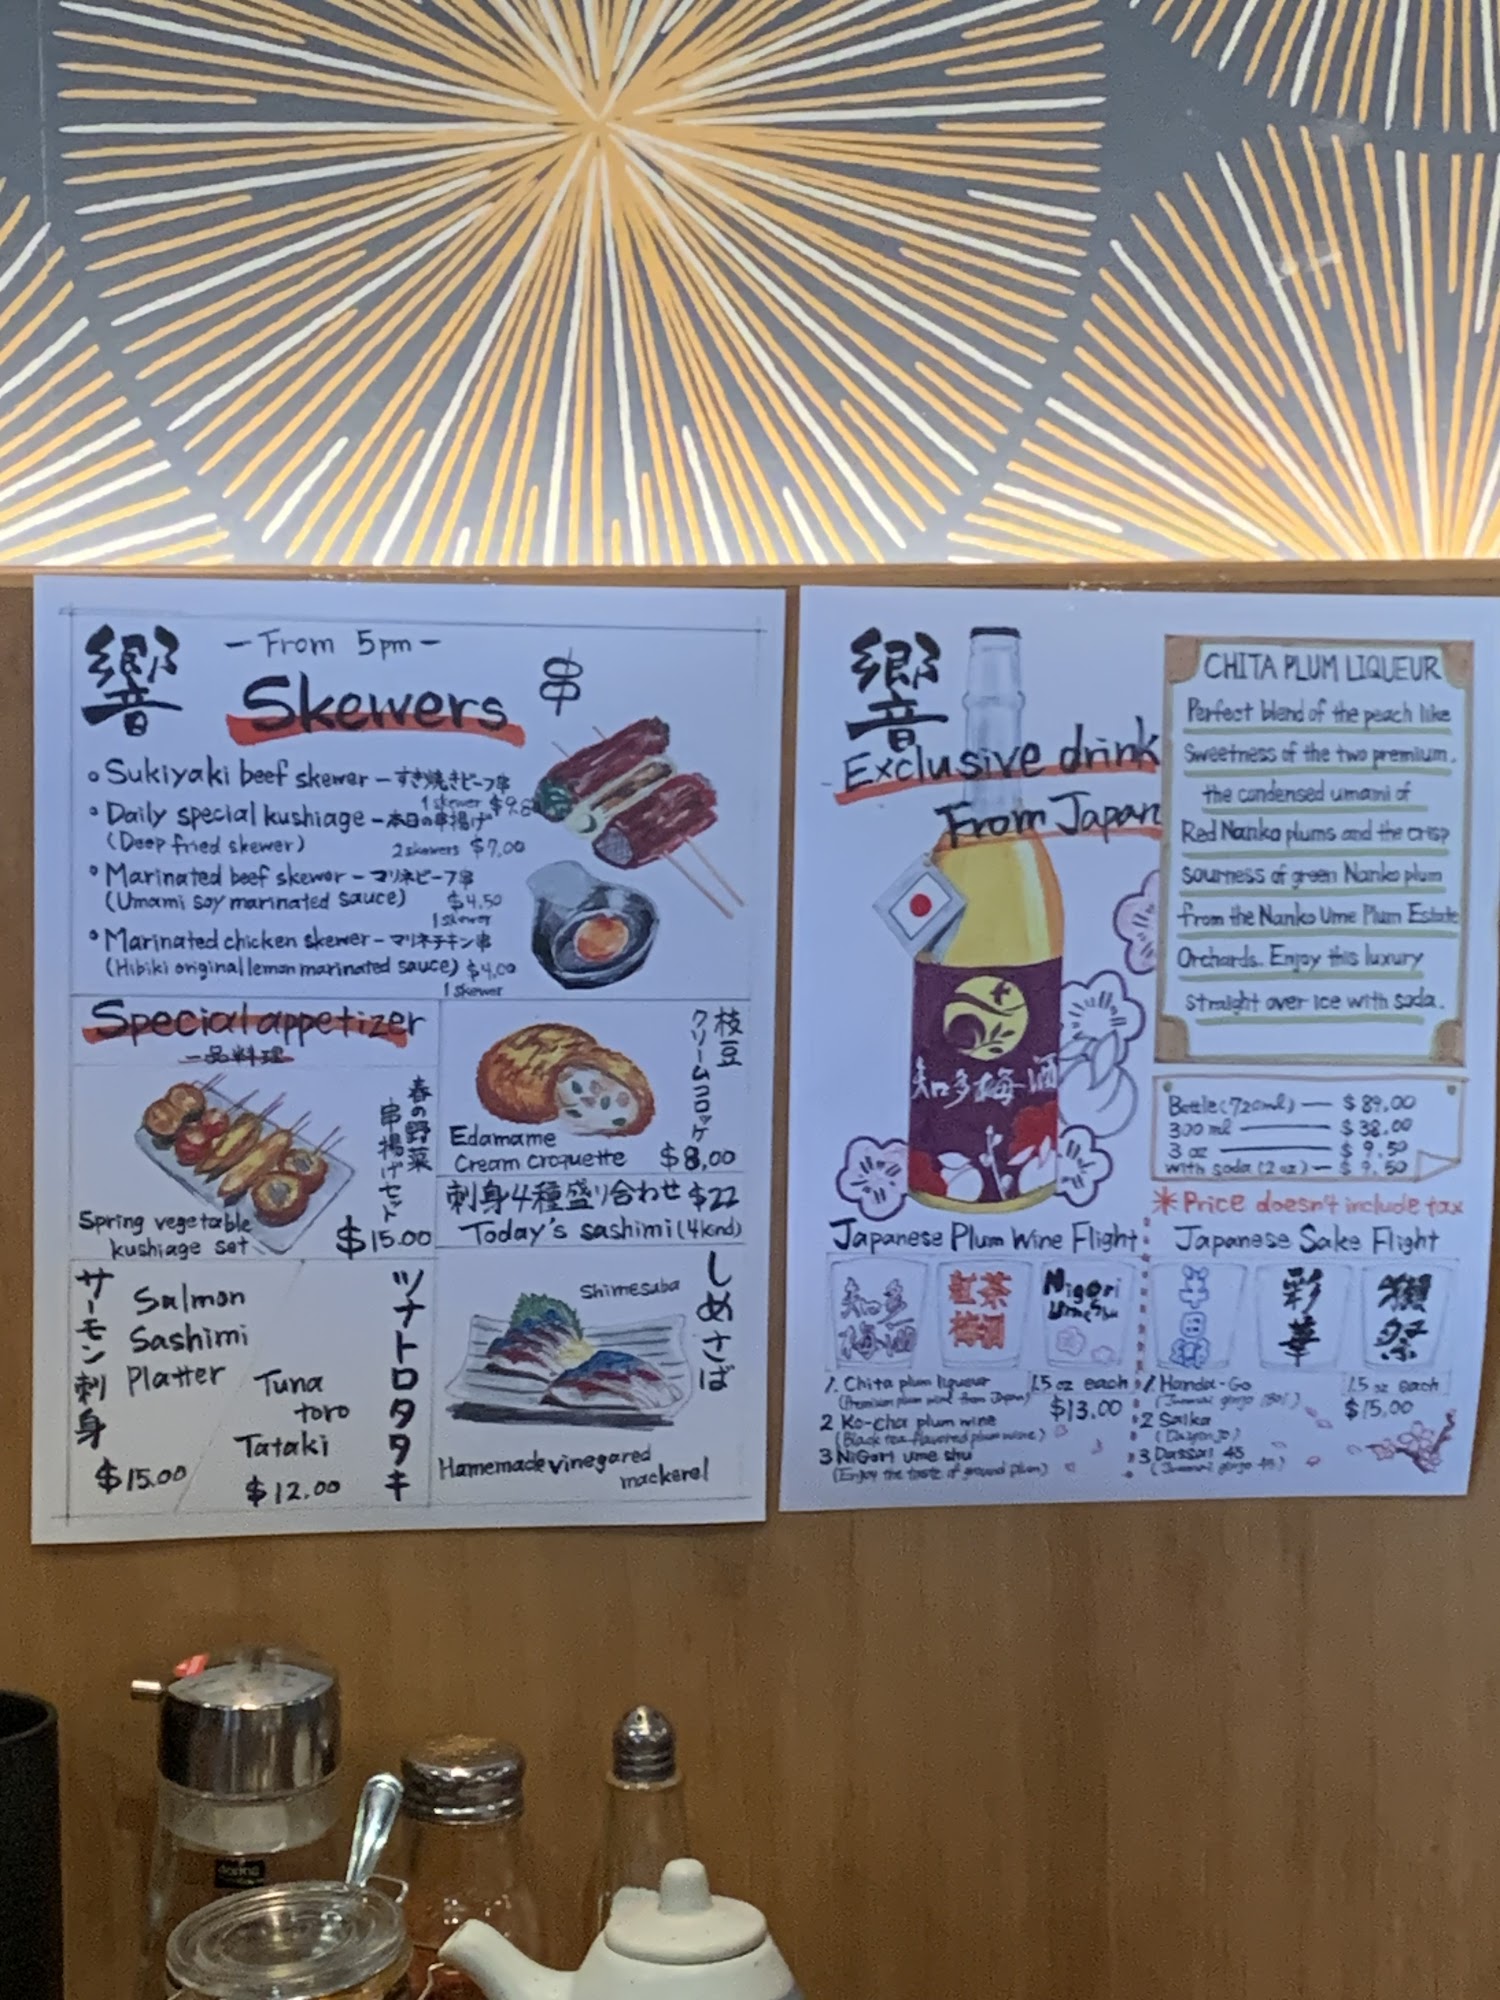 響
— From 5pm —
Skewers 串
Sukiyaki beef skewer — すき焼きビーフ串
1 skewer
Daily special kushiage — 本日の串揚げ
(Deep fried skewer) 2 skewers $7.00
Marinated beef skewer — マリネビーフ串
(Umami soy marinated sauce) $4.50
1 skewer
Marinated chicken skewer — マリネチキン串
(Hibiki original lemon marinated sauce) $4.00
1 skewer
Special appetizer
一品料理
春の野菜
串揚げセット
Spring vegetable
kushiage set $15.00
枝豆
クリームコロッケ
Edamame
Cream croquette $8.00
刺身4種盛り合わせ $22
Today's sashimi (4kind)
サーモン刺身
Salmon
Sashimi
Platter
$15.00
ツナトロタタキ
Tuna
toro
Tataki
$12.00
しめさば
Shimesaba
Hamemade vinegared
mackerel
響
Exclusive drink
From Japan
知多梅酒
CHITA PLUM LIQUEUR
Perfect blend of the peach like
Sweetness of the two premium.
the condensed umami of
Red Nanko plums and the crisp
sourness of green Nanko plum
from the Nanko Ume Plum Estate
Orchards. Enjoy this luxury
straight over ice with soda.
Bottle (720ml) — $89.00
300 ml — $38.00
3 oz — $9.50
with soda (2 oz) — $9.50
*Price doesn't include tax
Japanese Plum Wine Flight
知多梅酒
紅茶梅酒
Nigori
Umeshu
1. Chita plum liqueur 1.5 oz each
(Premium plum wine from Japan) $13.00
2 Ko-cha plum wine
(Black tea flavored plum wine)
3 NiGori ume shu
(Enjoy the taste of ground plum)
Japanese Sake Flight
半田郷
彩華
獺祭
1. Handa-Go 1.5 oz each
$15.00
2 Saika
3 Dassai 45